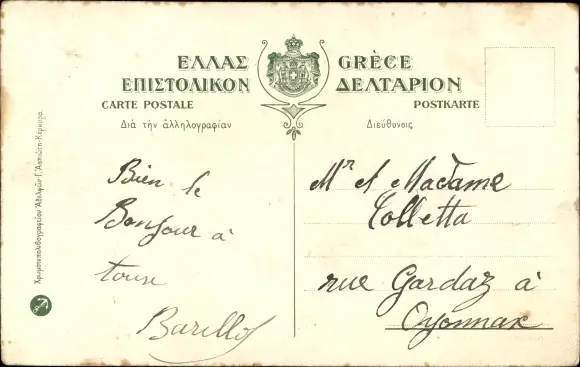 ΕΛΛΑΣ GRÈCE
ΕΠΙΣΤΟΛΙΚΟΝ ΔΕΛΤΑΡΙΟΝ
CARTE POSTALE POSTKARTE
Διὰ τὴν ἀλληλογραφίαν
Διεύθυνσις
Χρωμοτυπολιθογραφεῖον Ἀδελφῶν Γ. Ἀσπιώτη-Κέρκυρα
Bien le
Bonjour à
tous
Mr et Madame
Colletta
rue Gardaz à
Oyonnax